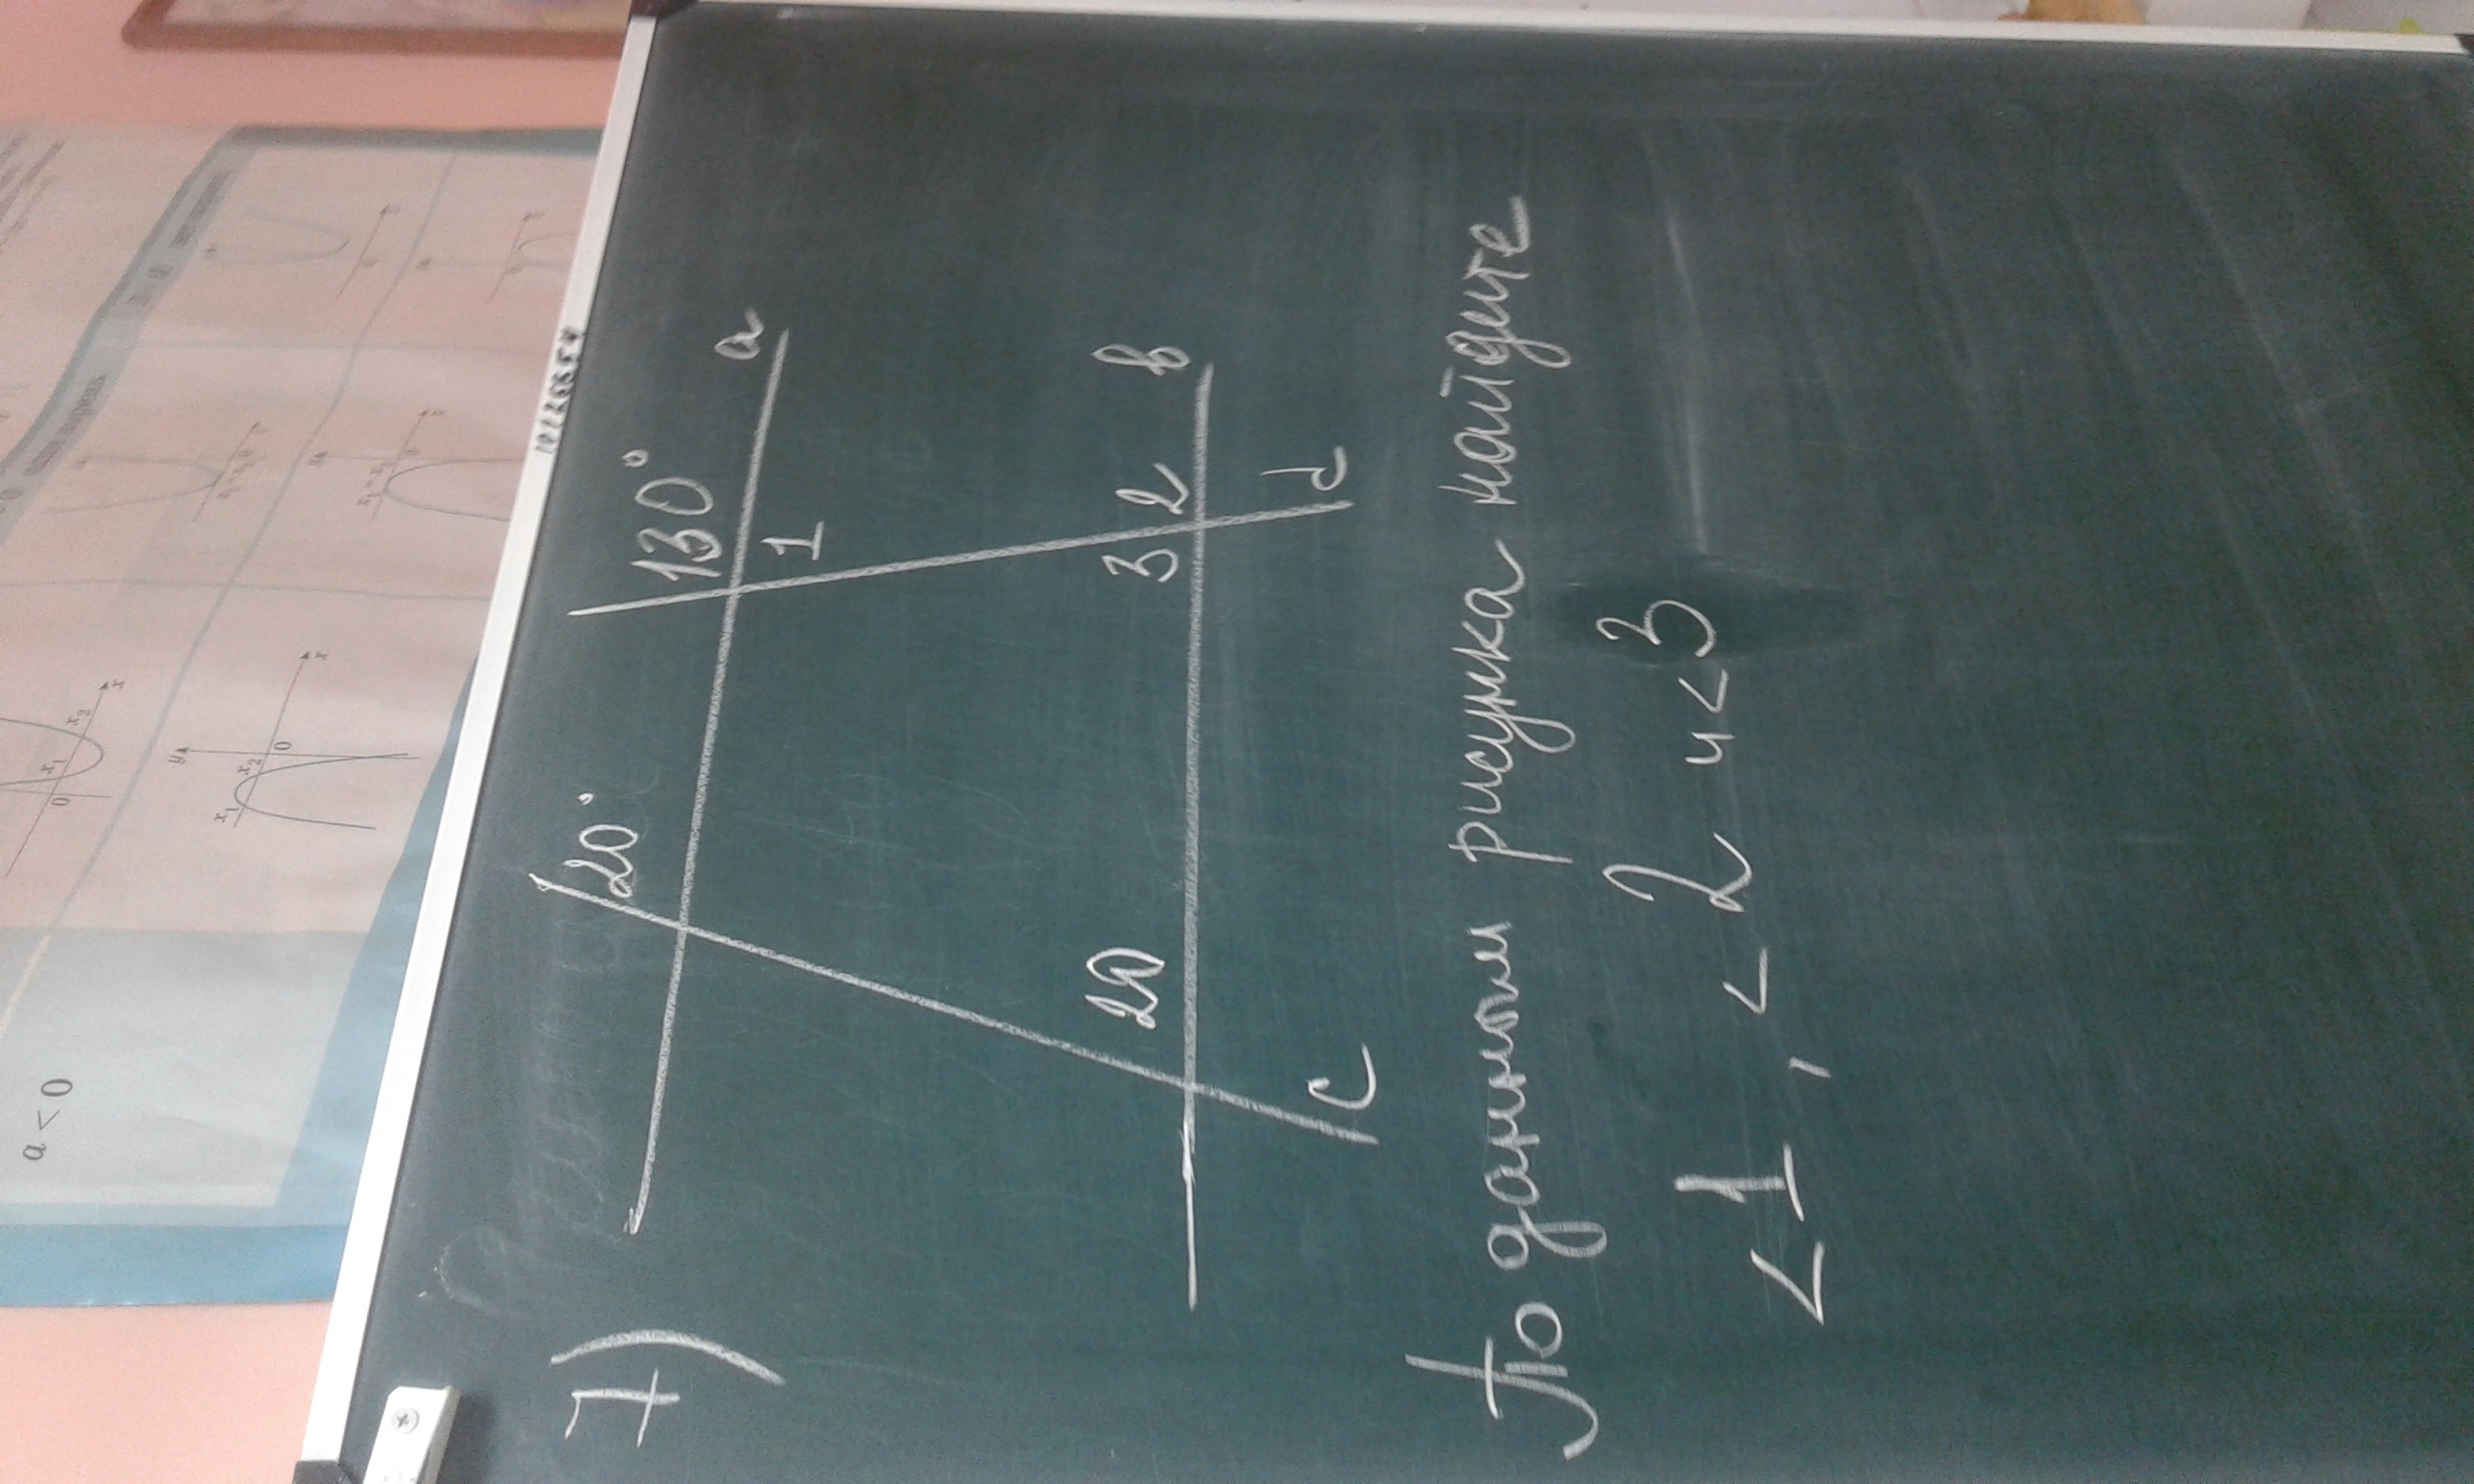 7)
120°
130°
a
1
20
3
2
b
c
d
По данным рисунка найдите
<1, <2 и <3
a < 0
x₁
x₂
0
x
y
x₁
x₂
0
x